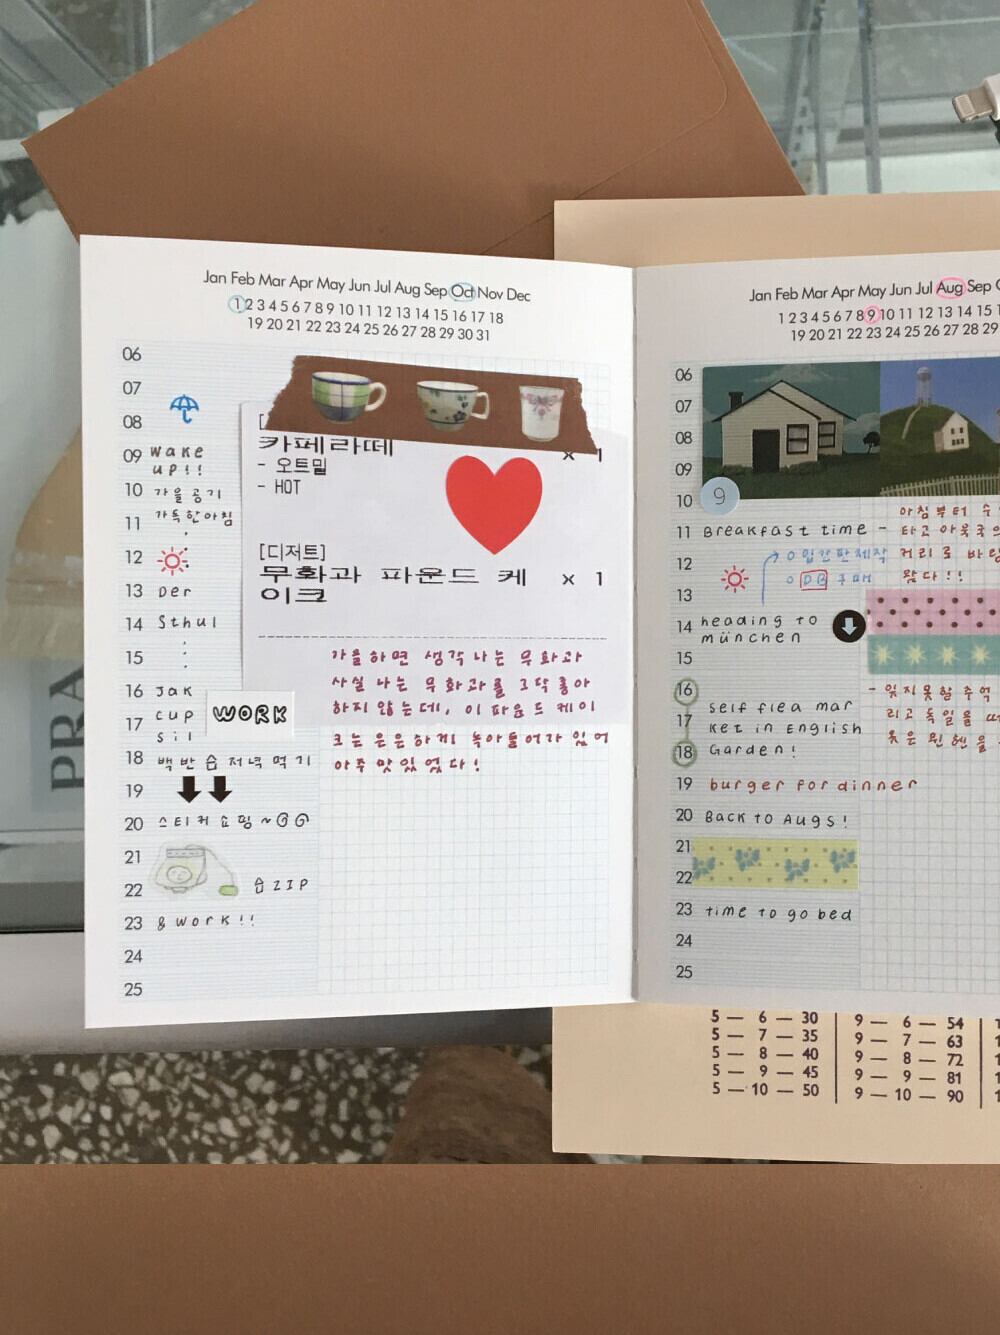 Jan Feb Mar Apr May Jun Jul Aug Sep Oct Nov Dec
1 2 3 4 5 6 7 8 9 10 11 12 13 14 15 16 17 18
19 20 21 22 23 24 25 26 27 28 29 30 31
06
07
08
09 wake
up!!
10 가을 공기
11 가득한 아침
12
13 Der
14 Sthul
15
16 Jak
17 cup WORK
sil
18 백반 숍 저녁 먹기
19
20 스티커 쇼핑~
21
22 숍 ZIP
23 & work!!
24
25
카페라떼 x 1
- 오트밀
- HOT
[디저트]
무화과 파운드 케 x 1
이크
가을하면 생각나는 무화과
사실 나는 무화과를 그닥 좋아
하지 않는데, 이 파운드 케이
크는 은은하게 녹아들어가 있어
아주 맛있었다!
PRA
Jan Feb Mar Apr May Jun Jul Aug Sep
1 2 3 4 5 6 7 8 9 10 11 12 13 14 15
19 20 21 22 23 24 25 26 27 28 29
06
07
08
09
10 9
11 Breakfast time - 아침부터
타고
12 입간판 제작 거리로
DB 구매 왔다!!
13
14 heading to
münchen
15
16
17 self flea mar
ket in English
18 Garden!
- 잊지 못할 추억
리고 독일을
19 burger for dinner
20 Back to Augs!
21
22
23 time to go bed
24
25
5 — 6 — 30 9 — 6 — 54
5 — 7 — 35 9 — 7 — 63
5 — 8 — 40 9 — 8 — 72
5 — 9 — 45 9 — 9 — 81
5 — 10 — 50 9 — 10 — 90